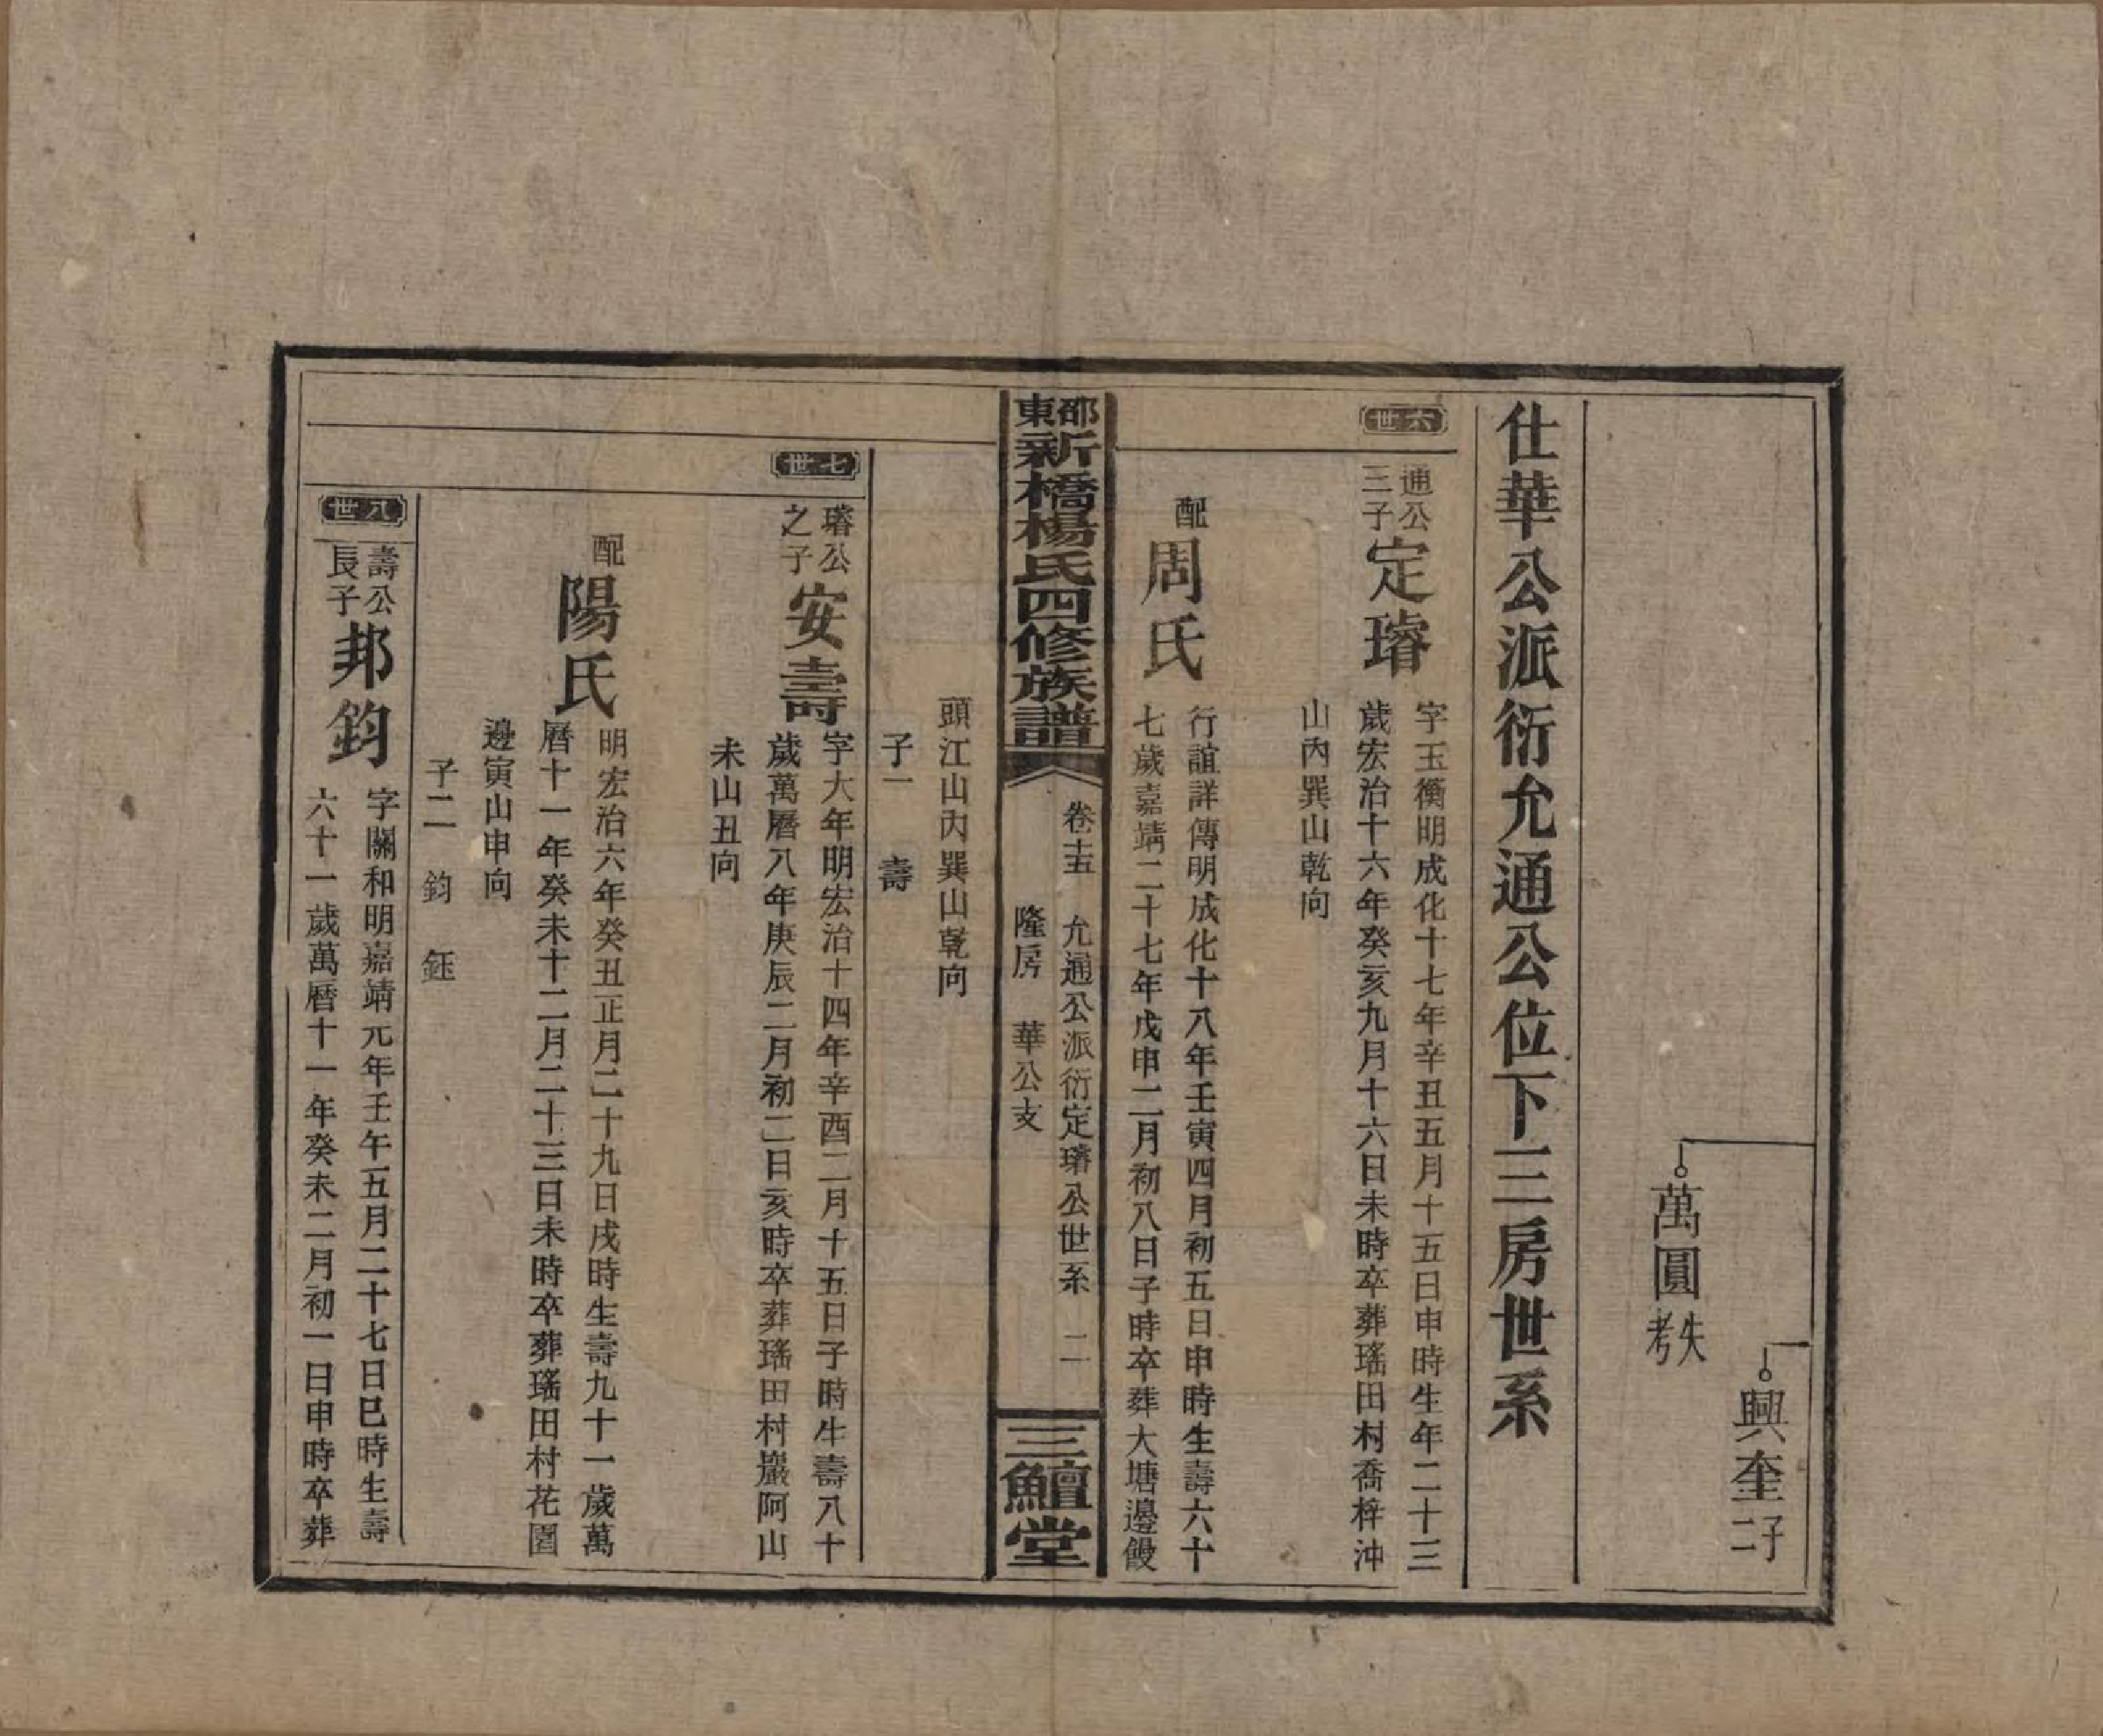 興奎 二子
萬圓 失考
仕華公派衍允通公位下三房世系
六世
通公
三子
定璿
字玉衡明成化十七年辛丑五月十五日申時生年二十三
歲宏治十六年癸亥九月十六日未時卒葬瑤田村喬梓沖
山內巽山乾向
配
周氏
行誼詳傳明成化十八年壬寅四月初五日申時生壽六十
七歲嘉靖二十七年戊申二月初八日子時卒葬大塘邊饅
邵東
新橋楊氏四修族譜
卷十五 允通公派衍定璿公世系 二
隆房 華公支
三鱣堂
頭江山內巽山乾向
子一 壽
七世
璿公
之子
安壽
字大年明宏治十四年辛酉二月十五日子時生壽八十
歲萬曆八年庚辰二月初二日亥時卒葬瑤田村巖阿山
未山丑向
配
陽氏
明宏治六年癸丑正月二十九日戌時生壽九十一歲萬
曆十一年癸未十二月二十三日未時卒葬瑤田村花園
邊寅山申向
子二 鈞 鈺
八世
壽公
長子
邦鈞
字關和明嘉靖元年壬午五月二十七日巳時生壽
六十一歲萬曆十一年癸未二月初一日申時卒葬